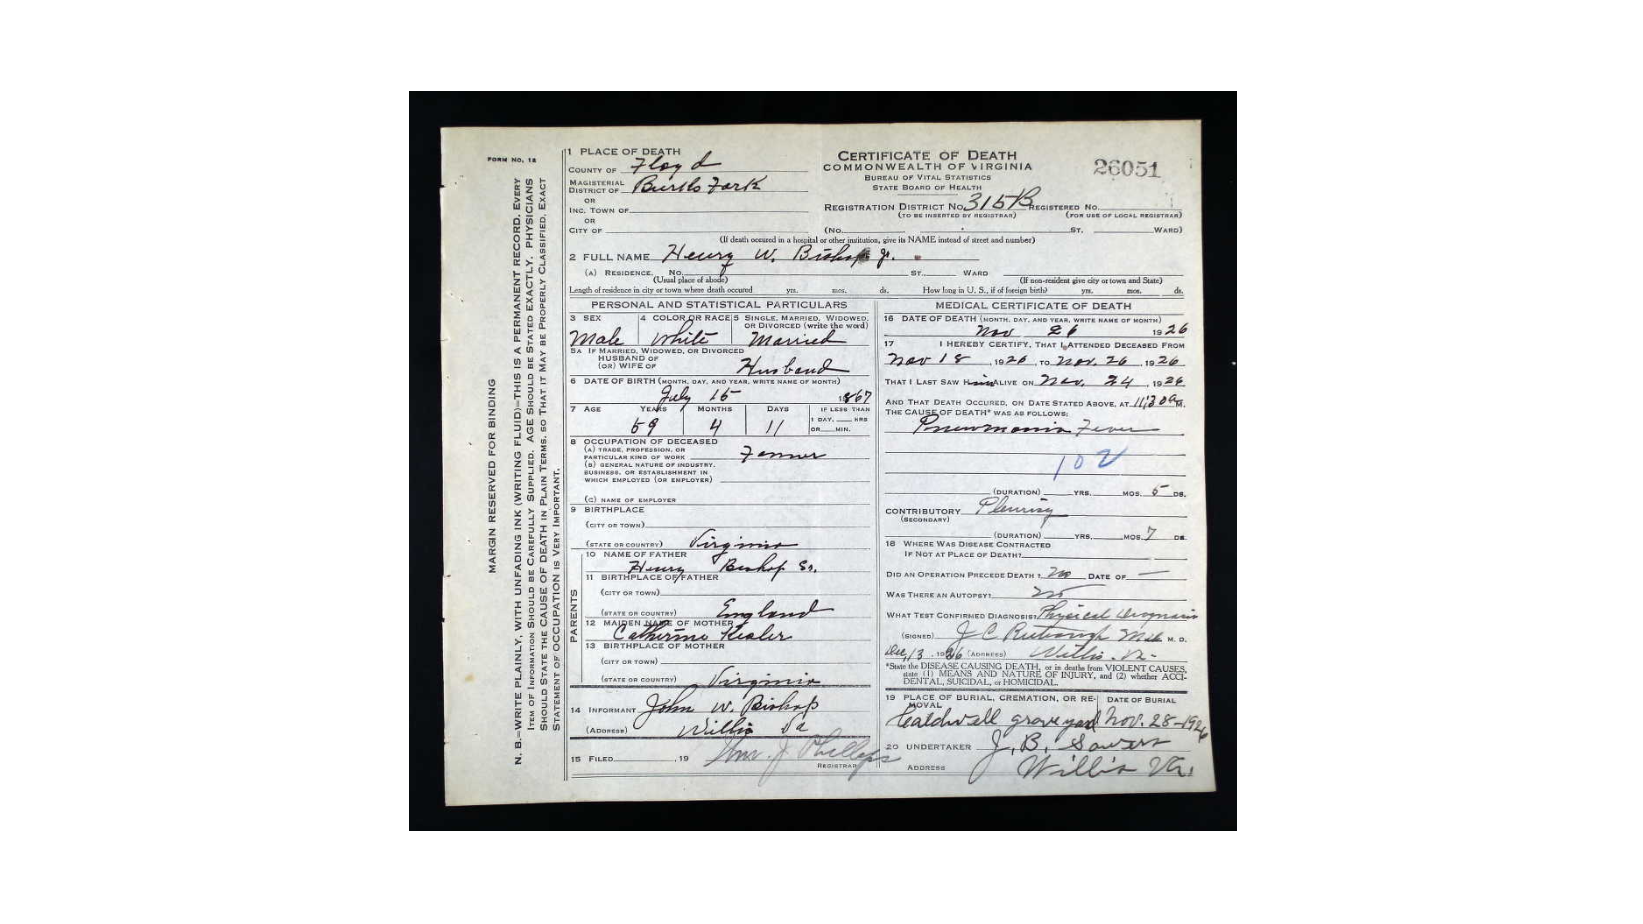 FORM NO. 18
MARGIN RESERVED FOR BINDING
N. B.—WRITE PLAINLY, WITH UNFADING INK (WRITING FLUID)—THIS IS A PERMANENT RECORD. EVERY
ITEM OF INFORMATION SHOULD BE CAREFULLY SUPPLIED. AGE SHOULD BE STATED EXACTLY. PHYSICIANS
SHOULD STATE THE CAUSE OF DEATH IN PLAIN TERMS, SO THAT IT MAY BE PROPERLY CLASSIFIED. EXACT
STATEMENT OF OCCUPATION IS VERY IMPORTANT.
1 PLACE OF DEATH
COUNTY OF Floyd
MAGISTERIAL DISTRICT OF Burks Fork
OR
INC. TOWN OF
OR
CITY OF
CERTIFICATE OF DEATH
COMMONWEALTH OF VIRGINIA
BUREAU OF VITAL STATISTICS
STATE BOARD OF HEALTH
26051
REGISTRATION DISTRICT NO. 315B REGISTERED NO.
(TO BE INSERTED BY REGISTRAR) (FOR USE OF LOCAL REGISTRAR)
(NO. ST. WARD)
(If death occured in a hospital or other institution, give its NAME instead of street and number)
2 FULL NAME Henry W. Bishop Jr.
(A) RESIDENCE. No. ST. WARD
(Usual place of abode) (If non-resident give city or town and State)
Length of residence in city or town where death occured yrs. mos. ds. How long in U. S., if of foreign birth? yrs. mos. ds.
PERSONAL AND STATISTICAL PARTICULARS
3 SEX 4 COLOR OR RACE 5 SINGLE, MARRIED, WIDOWED, OR DIVORCED (write the word)
Male White Married
5A IF MARRIED, WIDOWED, OR DIVORCED
HUSBAND OF
(OR) WIFE OF Husband
6 DATE OF BIRTH (MONTH, DAY, AND YEAR, WRITE NAME OF MONTH)
July 15 1867
7 AGE YEARS MONTHS DAYS IF LESS THAN
1 DAY, HRS
OR MIN.
59 4 11
8 OCCUPATION OF DECEASED
(A) TRADE, PROFESSION, OR
PARTICULAR KIND OF WORK Farmer
(B) GENERAL NATURE OF INDUSTRY,
BUSINESS, OR ESTABLISHMENT IN
WHICH EMPLOYED (OR EMPLOYER)
(C) NAME OF EMPLOYER
9 BIRTHPLACE
(CITY OR TOWN)
(STATE OR COUNTRY) Virginia
PARENTS
10 NAME OF FATHER
Henry Bishop Sr.
11 BIRTHPLACE OF FATHER
(CITY OR TOWN)
(STATE OR COUNTRY) England
12 MAIDEN NAME OF MOTHER
Catherine
13 BIRTHPLACE OF MOTHER
(CITY OR TOWN)
(STATE OR COUNTRY) Virginia
14 INFORMANT John W. Bishop
(ADDRESS) Willis Va
15 FILED , 19 J. Phillips
REGISTRAR
MEDICAL CERTIFICATE OF DEATH
16 DATE OF DEATH (MONTH, DAY, AND YEAR, WRITE NAME OF MONTH)
Nov 26 1926
17 I HEREBY CERTIFY, THAT I ATTENDED DECEASED FROM
Nov 18, 1926, TO Nov. 26, 1926
THAT I LAST SAW HIM ALIVE ON Nov. 24, 1926
AND THAT DEATH OCCURED, ON DATE STATED ABOVE, AT 11:30 A M.
THE CAUSE OF DEATH* WAS AS FOLLOWS:
Pneumonia Fever
102
(DURATION) YRS. MOS. 5 DS.
CONTRIBUTORY Pleurisy
(SECONDARY)
(DURATION) YRS. MOS. 7 DS.
18 WHERE WAS DISEASE CONTRACTED
IF NOT AT PLACE OF DEATH?
DID AN OPERATION PRECEDE DEATH? No DATE OF —
WAS THERE AN AUTOPSY? no
WHAT TEST CONFIRMED DIAGNOSIS? Physical Diagnosis
(SIGNED) J C M. D.
Dec, 13, 1926 (ADDRESS) Willis. Va.
*State the DISEASE CAUSING DEATH, or in deaths from VIOLENT CAUSES,
state (1) MEANS AND NATURE OF INJURY, and (2) whether ACCI-
DENTAL, SUICIDAL, or HOMICIDAL.
19 PLACE OF BURIAL, CREMATION, OR RE-
MOVAL DATE OF BURIAL
Caldwell graveyard Nov. 28-1926
20 UNDERTAKER J. B. Sowers
ADDRESS Willis Va.